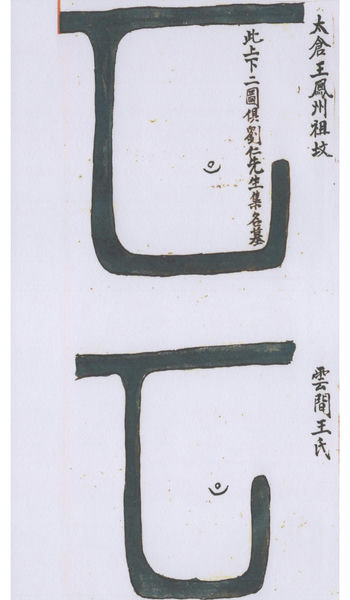 太倉王鳳州祖坟
此上下二圖俱劉仁先生集名墓
雲間王氏